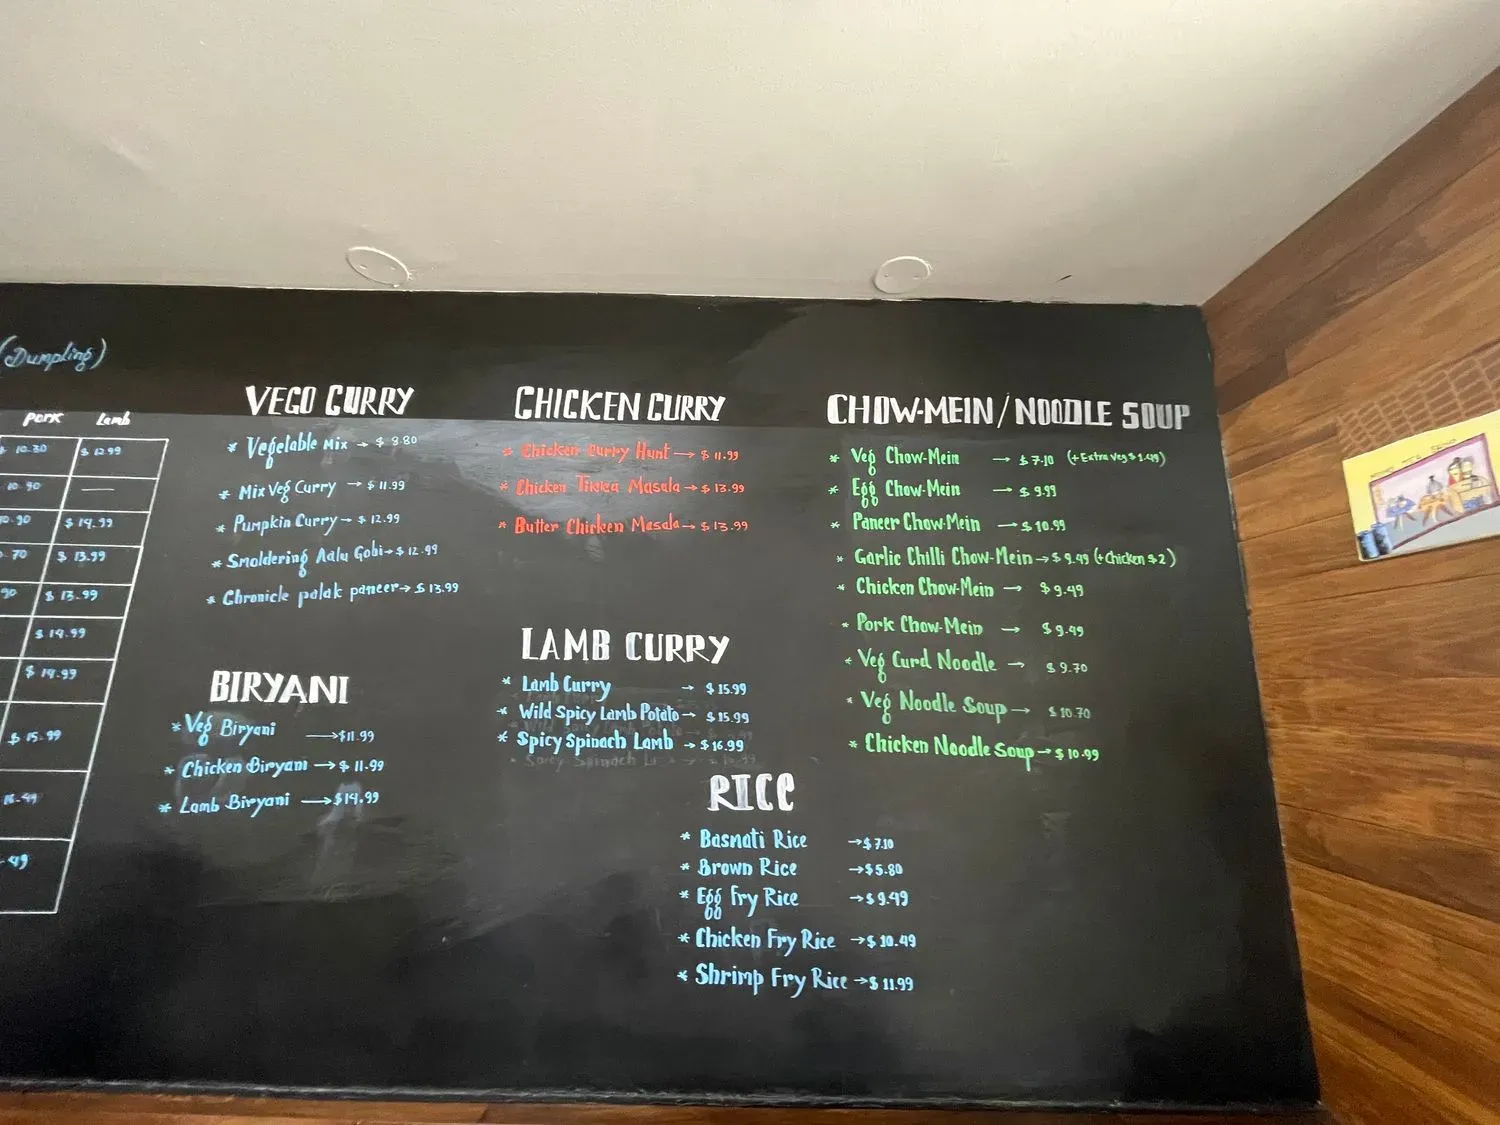 (Dumpling)
Pork Lamb
10.30 $ 12.99
10.90 —
0.90 $ 14.99
.70 $ 13.99
90 $ 13.99
$ 14.99
$ 14.99
$ 15.99
16.49
.49
VEGO CURRY
* Vegelable Mix → $ 9.80
* Mix Veg Curry → $ 11.99
* Pumpkin Curry → $ 12.99
* Smoldering Aalu Gobi → $ 12.99
* Chronicle palak paneer → $ 13.99
BIRYANI
* Veg Biryani → $11.99
* Chicken Biryani → $ 11.99
* Lamb Biryani → $14.99
CHICKEN CURRY
* Chicken Curry Hunt → $ 11.99
* Chicken Tikka Masala → $ 13.99
* Butter Chicken Masala → $ 13.99
LAMB CURRY
* Lamb Curry → $ 15.99
* Wild Spicy Lamb Potato → $ 15.99
* Spicy Spinach Lamb → $ 16.99
RICE
* Basmati Rice → $ 7.10
* Brown Rice → $ 5.80
* Egg Fry Rice → $ 9.49
* Chicken Fry Rice → $ 10.49
* Shrimp Fry Rice → $ 11.99
CHOW-MEIN / NOODLE SOUP
* Veg Chow-Mein → $ 7.10 (+Extra Veg $ 1.49)
* Egg Chow-Mein → $ 9.99
* Paneer Chow-Mein → $ 10.99
* Garlic Chilli Chow-Mein → $ 9.49 (+Chicken $2)
* Chicken Chow-Mein → $ 9.49
* Pork Chow-Mein → $ 9.49
* Veg Curd Noodle → $ 9.70
* Veg Noodle Soup → $ 10.70
* Chicken Noodle Soup → $ 10.99